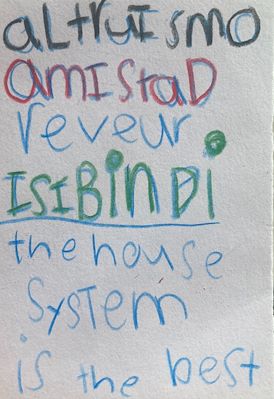 aLtruIsmo
amIstaD
reveur
ISIBinDi
the house
SysTem
is the best